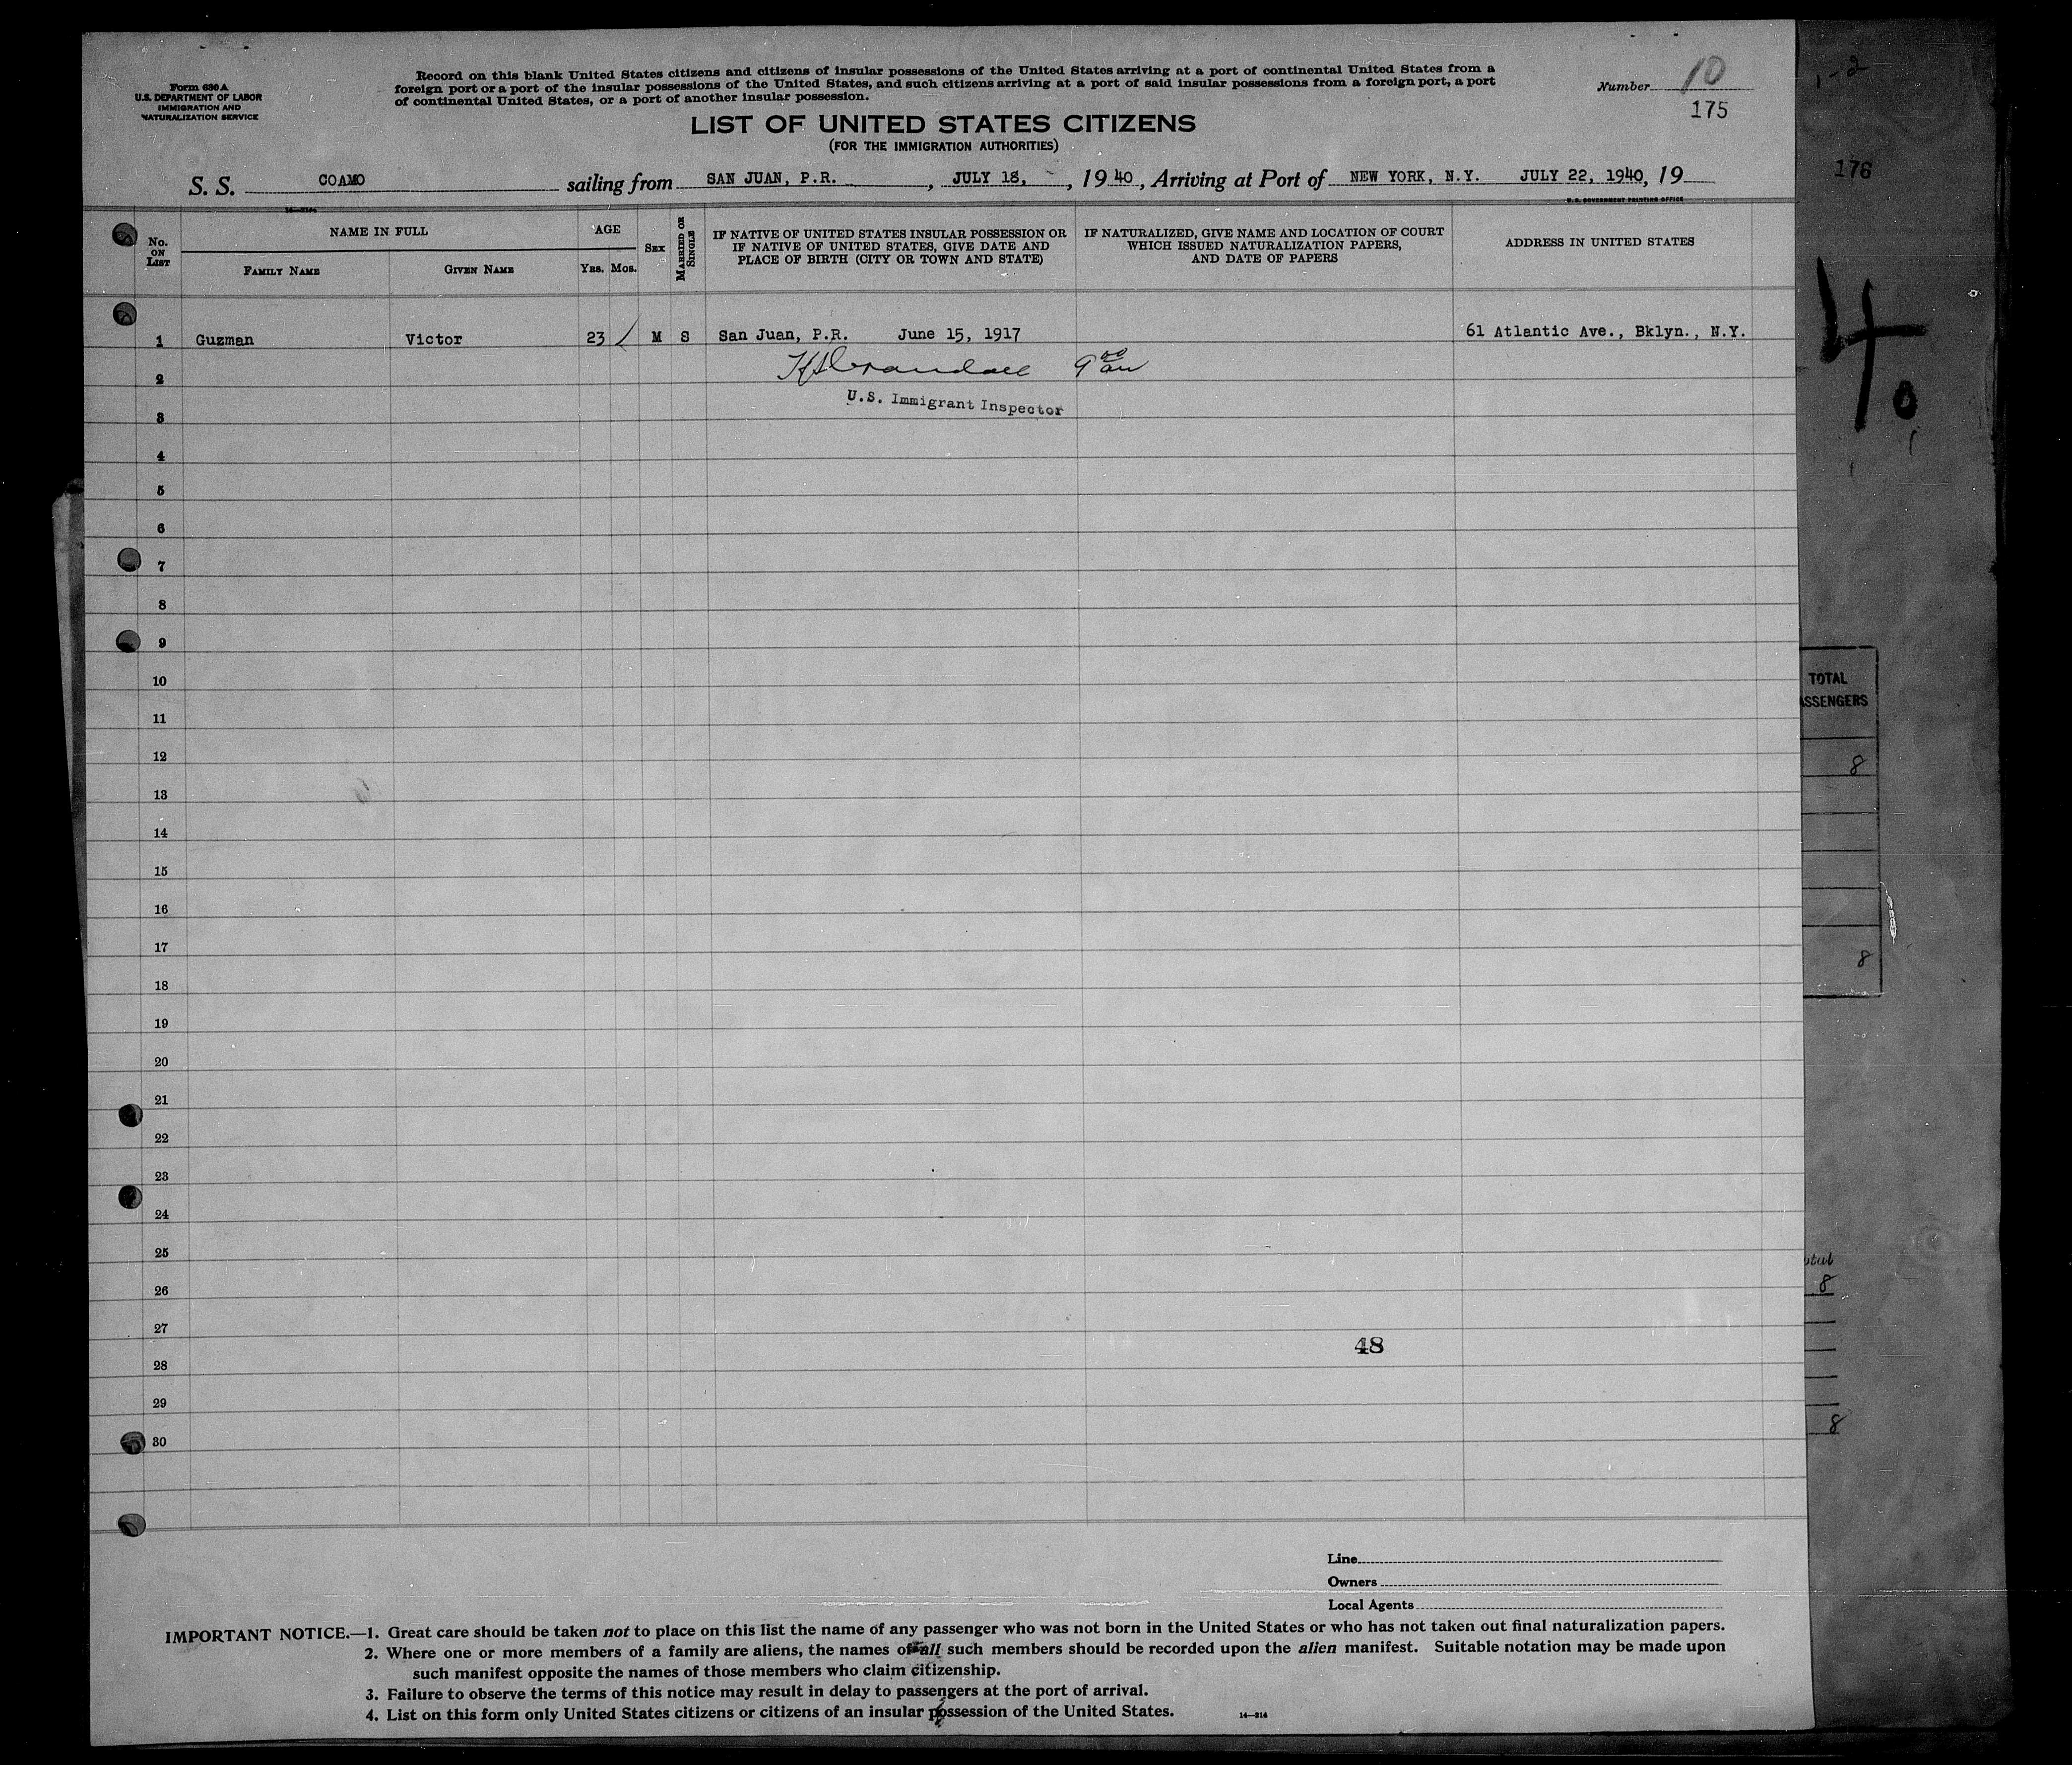 Form 630 A
U.S. DEPARTMENT OF LABOR
IMMIGRATION AND
NATURALIZATION SERVICE
Record on this blank United States citizens and citizens of insular possessions of the United States arriving at a port of continental United States from a
foreign port or a port of the insular possessions of the United States, and such citizens arriving at a port of said insular possessions from a foreign port, a port
of continental United States, or a port of another insular possession.
Number 10
175
LIST OF UNITED STATES CITIZENS
(FOR THE IMMIGRATION AUTHORITIES)
176
S. S. COAMO sailing from SAN JUAN, P.R. , JULY 18, , 19 40 , Arriving at Port of NEW YORK, N.Y. JULY 22, 1940, 19
U.S. GOVERNMENT PRINTING OFFICE
No. ON LIST
NAME IN FULL
FAMILY NAME GIVEN NAME
AGE
YRS. MOS.
SEX
MARRIED OR SINGLE
IF NATIVE OF UNITED STATES INSULAR POSSESSION OR
IF NATIVE OF UNITED STATES, GIVE DATE AND
PLACE OF BIRTH (CITY OR TOWN AND STATE)
IF NATURALIZED, GIVE NAME AND LOCATION OF COURT
WHICH ISSUED NATURALIZATION PAPERS,
AND DATE OF PAPERS
ADDRESS IN UNITED STATES
40
1 Guzman Victor 23 / M S San Juan, P.R. June 15, 1917 61 Atlantic Ave., Bklyn., N.Y.
2
U.S. Immigrant Inspector
3
4
5
6
7
8
9
10
11
12
13
14
15
16
17
18
19
20
21
22
23
24
25
26
27
48
28
29
30
TOTAL
8
8
8
8
Line
Owners
Local Agents
IMPORTANT NOTICE.—1. Great care should be taken not to place on this list the name of any passenger who was not born in the United States or who has not taken out final naturalization papers.
2. Where one or more members of a family are aliens, the names of all such members should be recorded upon the alien manifest. Suitable notation may be made upon
such manifest opposite the names of those members who claim citizenship.
3. Failure to observe the terms of this notice may result in delay to passengers at the port of arrival.
4. List on this form only United States citizens or citizens of an insular possession of the United States.